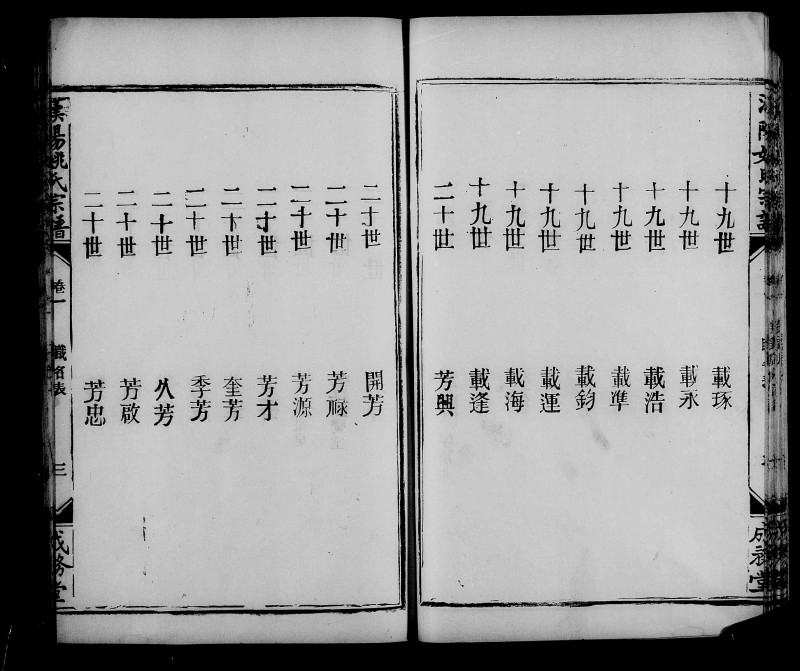 十九世 載琢
十九世 載永
十九世 載浩
十九世 載準
十九世 載鈞
十九世 載運
十九世 載海
十九世 載逢
二十世 芳興
二十世 開芳
二十世 芳祿
二十世 芳源
二十世 芳才
二十世 奎芳
二十世 季芳
二十世 久芳
二十世 芳啟
二十世 芳忠
漢陽姚氏宗譜
卷一
職名表
三
成務堂